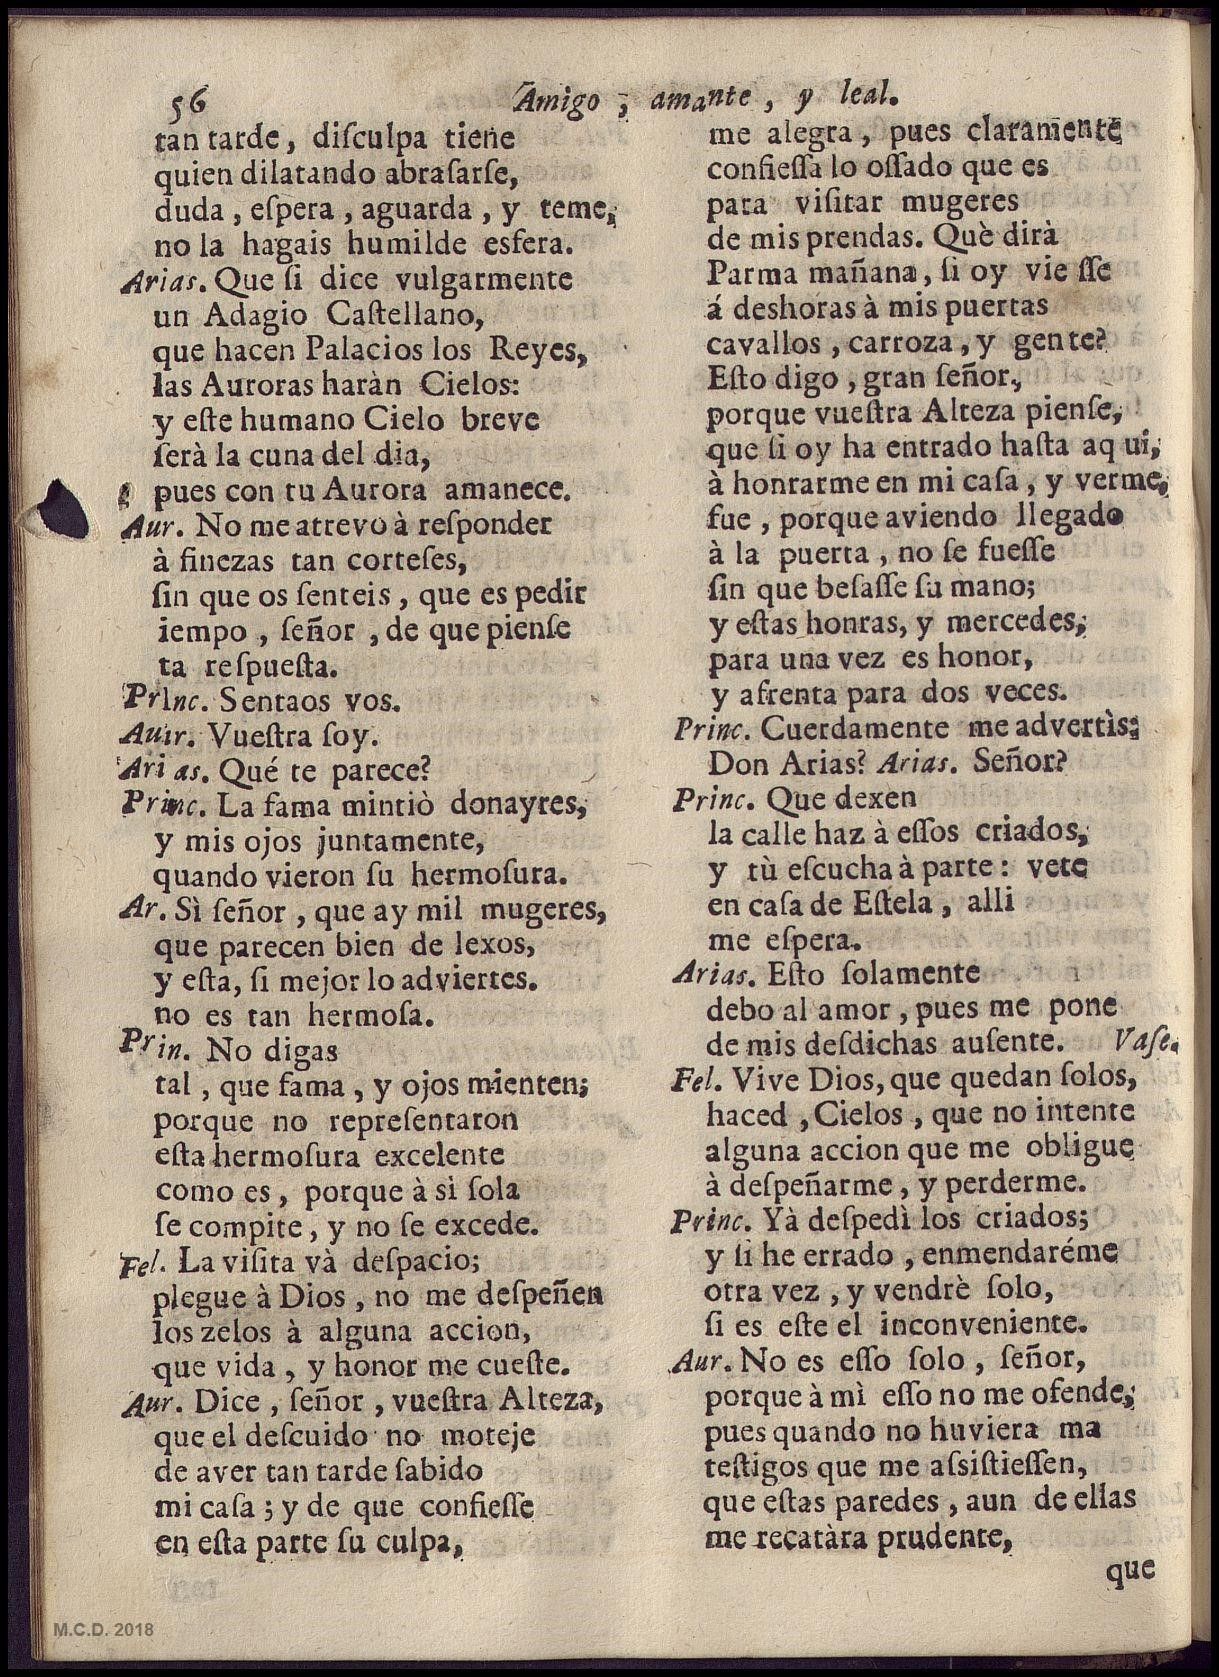 56
Amigo, amante, y leal.
tan tarde, diſculpa tiene
quien dilatando abraſarſe,
duda, eſpera, aguarda, y teme,
no la hagais humilde esfera.
Arias. Que ſi dice vulgarmente
un Adagio Caſtellano,
que hacen Palacios los Reyes,
las Auroras haràn Cielos:
y eſte humano Cielo breve
ſerà la cuna del dia,
pues con tu Aurora amanece.
Aur. No me atrevo à reſponder
à finezas tan corteſes,
ſin que os ſenteis, que es pedir
iempo, ſeñor, de que pienſe
ta reſpueſta.
Princ. Sentaos vos.
Auir. Vueſtra ſoy.
Arias. Qué te parece?
Princ. La fama mintiò donayres,
y mis ojos juntamente,
quando vieron ſu hermoſura.
Ar. Sì ſeñor, que ay mil mugeres,
que parecen bien de lexos,
y eſta, ſi mejor lo adviertes.
no es tan hermoſa.
Prin. No digas
tal, que fama, y ojos mienten;
porque no repreſentaron
eſta hermoſura excelente
como es, porque à sì ſola
ſe compite, y no ſe excede.
Fel. La viſita và deſpacio;
plegue à Dios, no me deſpeñen
los zelos à alguna accion,
que vida, y honor me cueſte.
Aur. Dice, ſeñor, vueſtra Alteza,
que el deſcuido no moteje
de aver tan tarde ſabido
mi caſa; y de que confieſſe
en eſta parte ſu culpa,
me alegra, pues claramente
confieſſa lo oſſado que es
para viſitar mugeres
de mis prendas. Què dirà
Parma mañana, ſi oy vieſſe
á deshoras à mis puertas
cavallos, carroza, y gente?
Eſto digo, gran ſeñor,
porque vueſtra Alteza pienſe,
que ſi oy ha entrado haſta aqui,
à honrarme en mi caſa, y verme,
fue, porque aviendo llegado
à la puerta, no ſe fueſſe
ſin que beſaſſe ſu mano;
y eſtas honras, y mercedes,
para una vez es honor,
y afrenta para dos veces.
Princ. Cuerdamente me advertìs:
Don Arias? Arias. Señor?
Princ. Que dexen
la calle haz à eſſos criados,
y tù eſcucha à parte: vete
en caſa de Eſtela, alli
me eſpera.
Arias. Eſto ſolamente
debo al amor, pues me pone
de mis deſdichas auſente. Vaſe.
Fel. Vive Dios, que quedan ſolos,
haced, Cielos, que no intente
alguna accion que me obligue
à deſpeñarme, y perderme.
Princ. Yà deſpedì los criados;
y ſi he errado, enmendaréme
otra vez, y vendrè ſolo,
ſi es eſte el inconveniente.
Aur. No es eſſo ſolo, ſeñor,
porque à mì eſſo no me ofende,
pues quando no huviera ma
teſtigos que me aſsiſtieſſen,
que eſtas paredes, aun de ellas
me recatàra prudente,
que
M.C.D. 2018